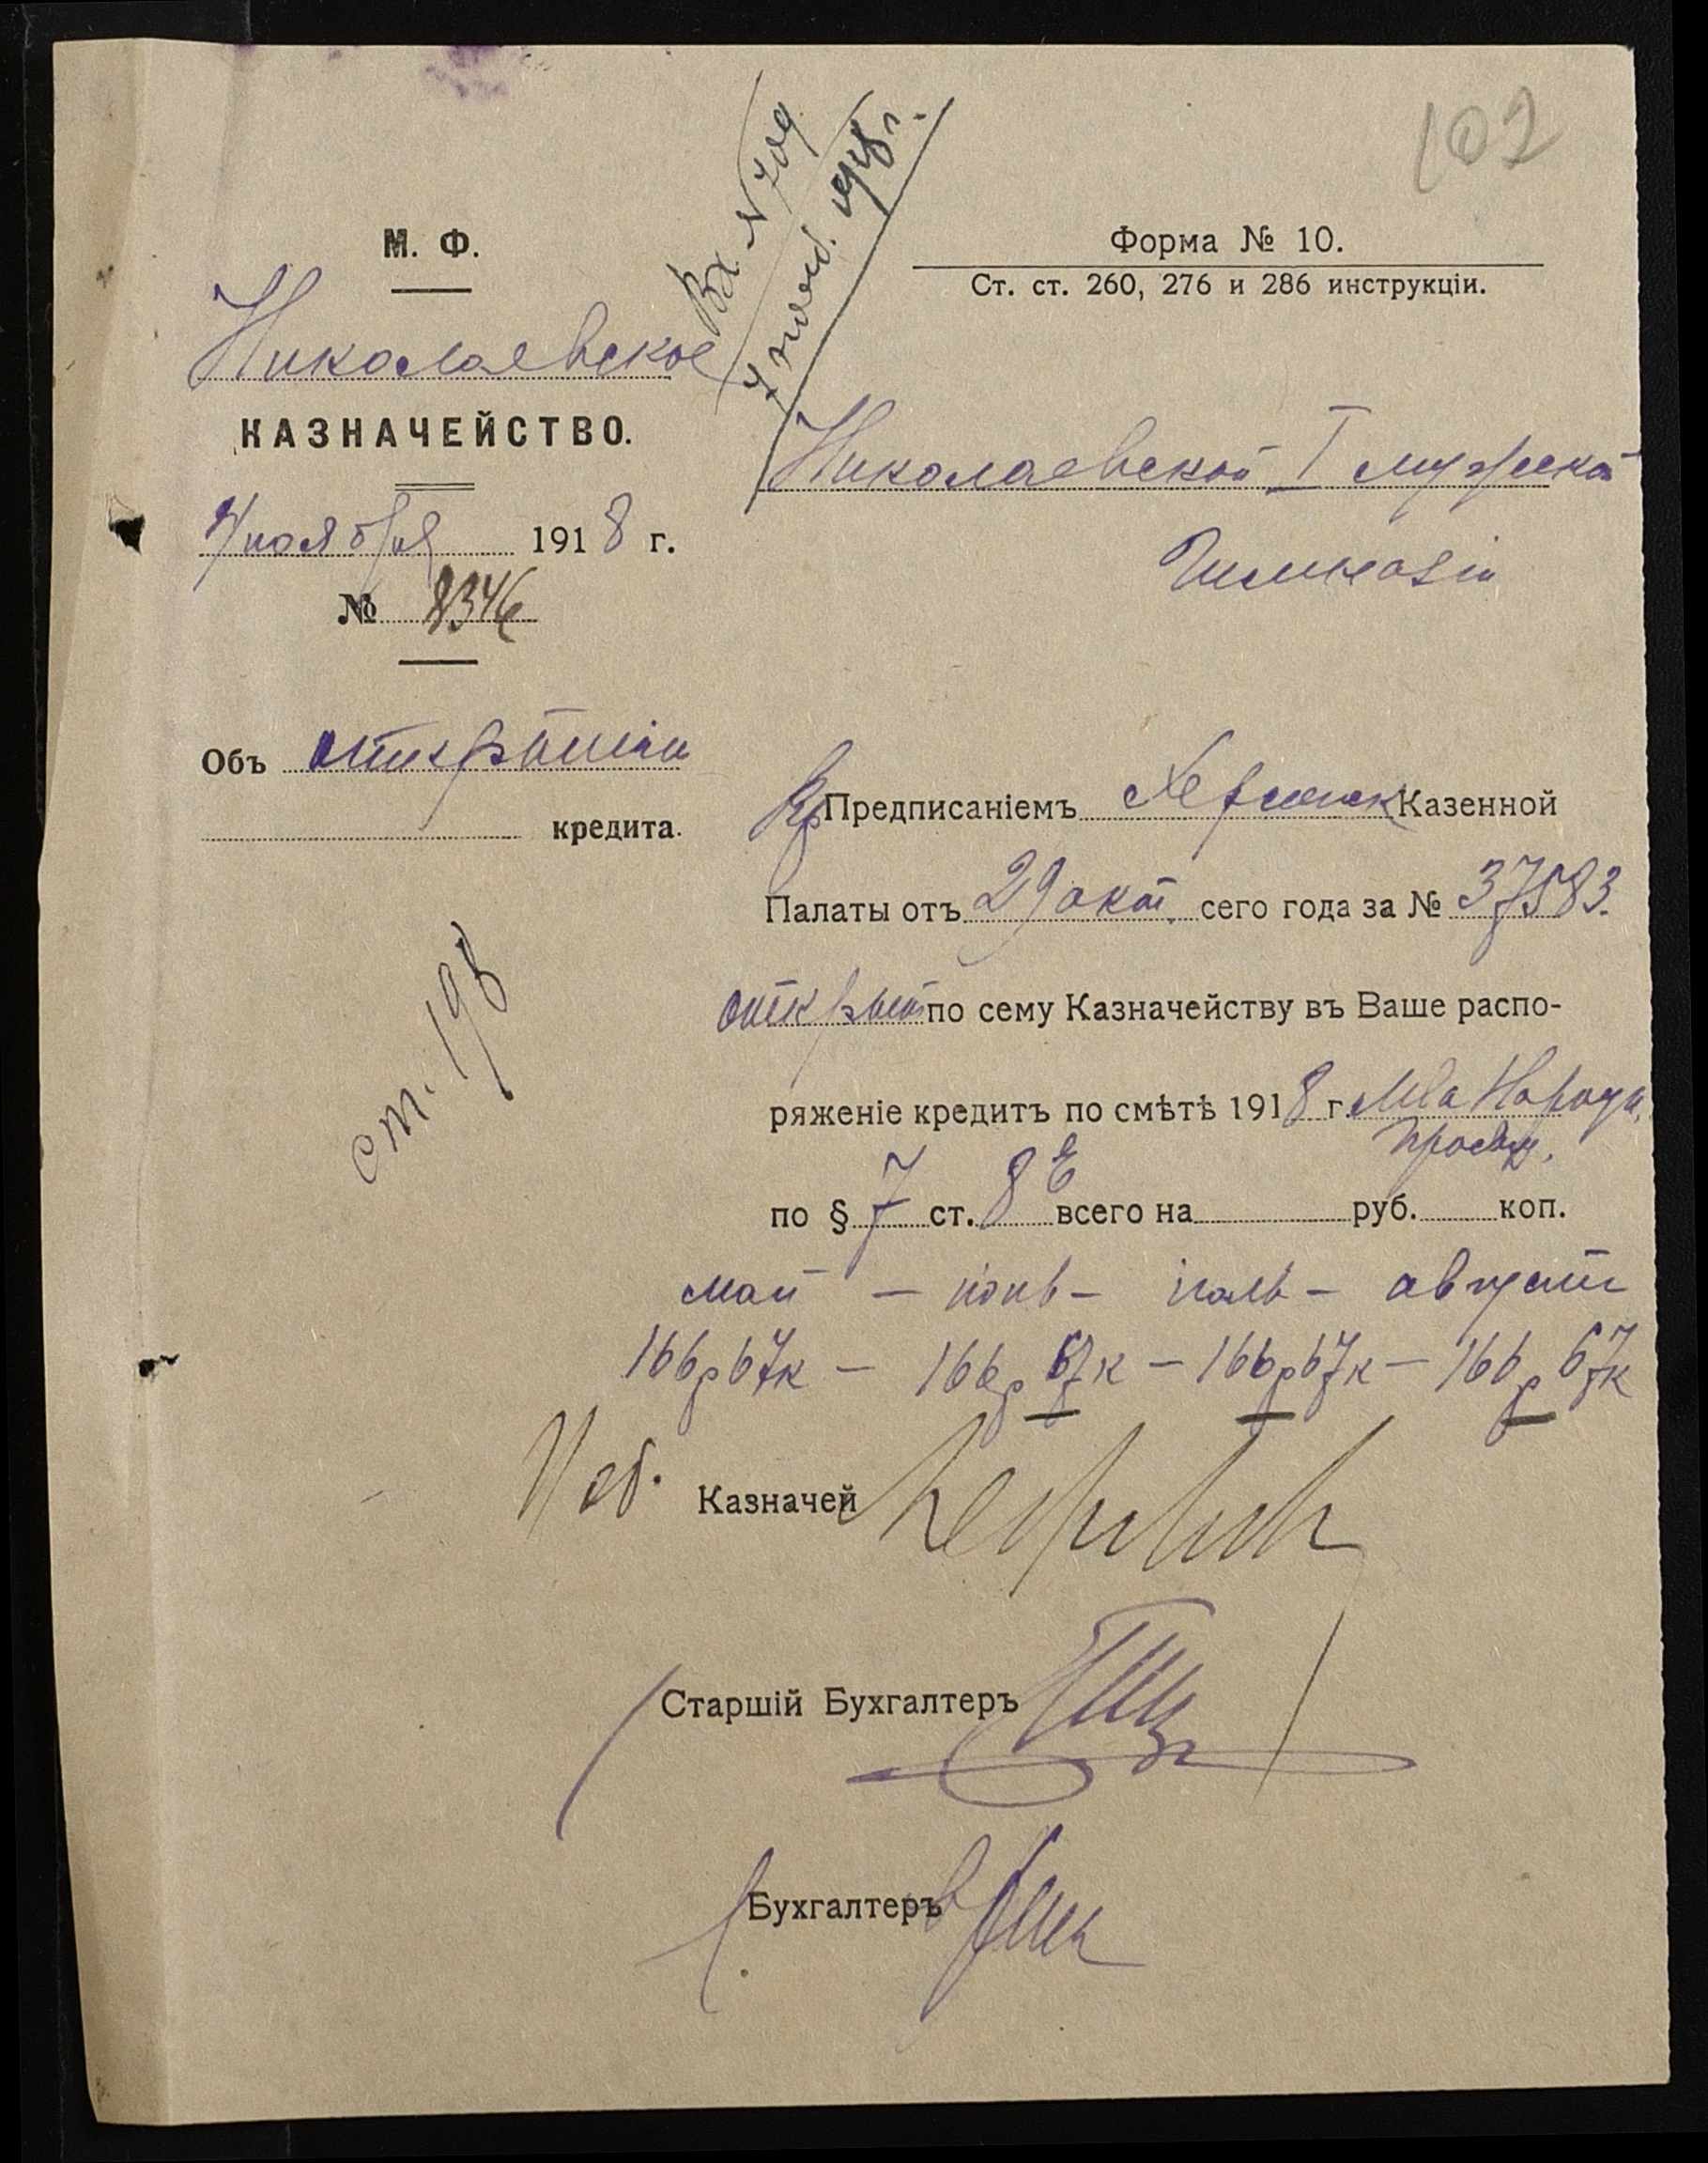 102
М. Ф.
Николаевское
КАЗНАЧЕЙСТВО.
7 ноября 1918 г.
№ 8346
Объ открытіи
кредита.
Вх. N 709
7 нояб. 1918 г.
Форма № 10.
Ст. ст. 260, 276 и 286 инструкціи.
Николаевской I мужской
Гимназіи
Предписаніемъ Херсонск Казенной
Палаты отъ 29 окт. сего года за № 37583.
открыт по сему Казначейству въ Ваше распо-
ряженіе кредитъ по смѣтѣ 1918 г. М-ва Народн.
Просв.
по § 7 ст. 8 всего на руб. коп.
май — іюнь — іюль — август
166 р 67 к — 166 р 67 к — 166 р 67 к — 166 р 67 к
ст. 198
Казначей
Старшій Бухгалтеръ
Бухгалтеръ